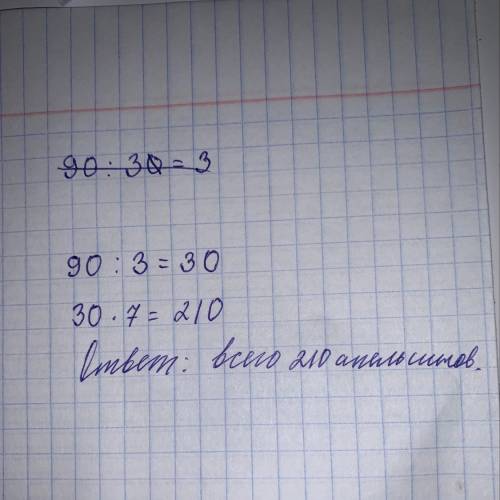 90 : 30 = 3
90 : 3 = 30
30 · 7 = 210
Ответ: всего 210 апельсинов.